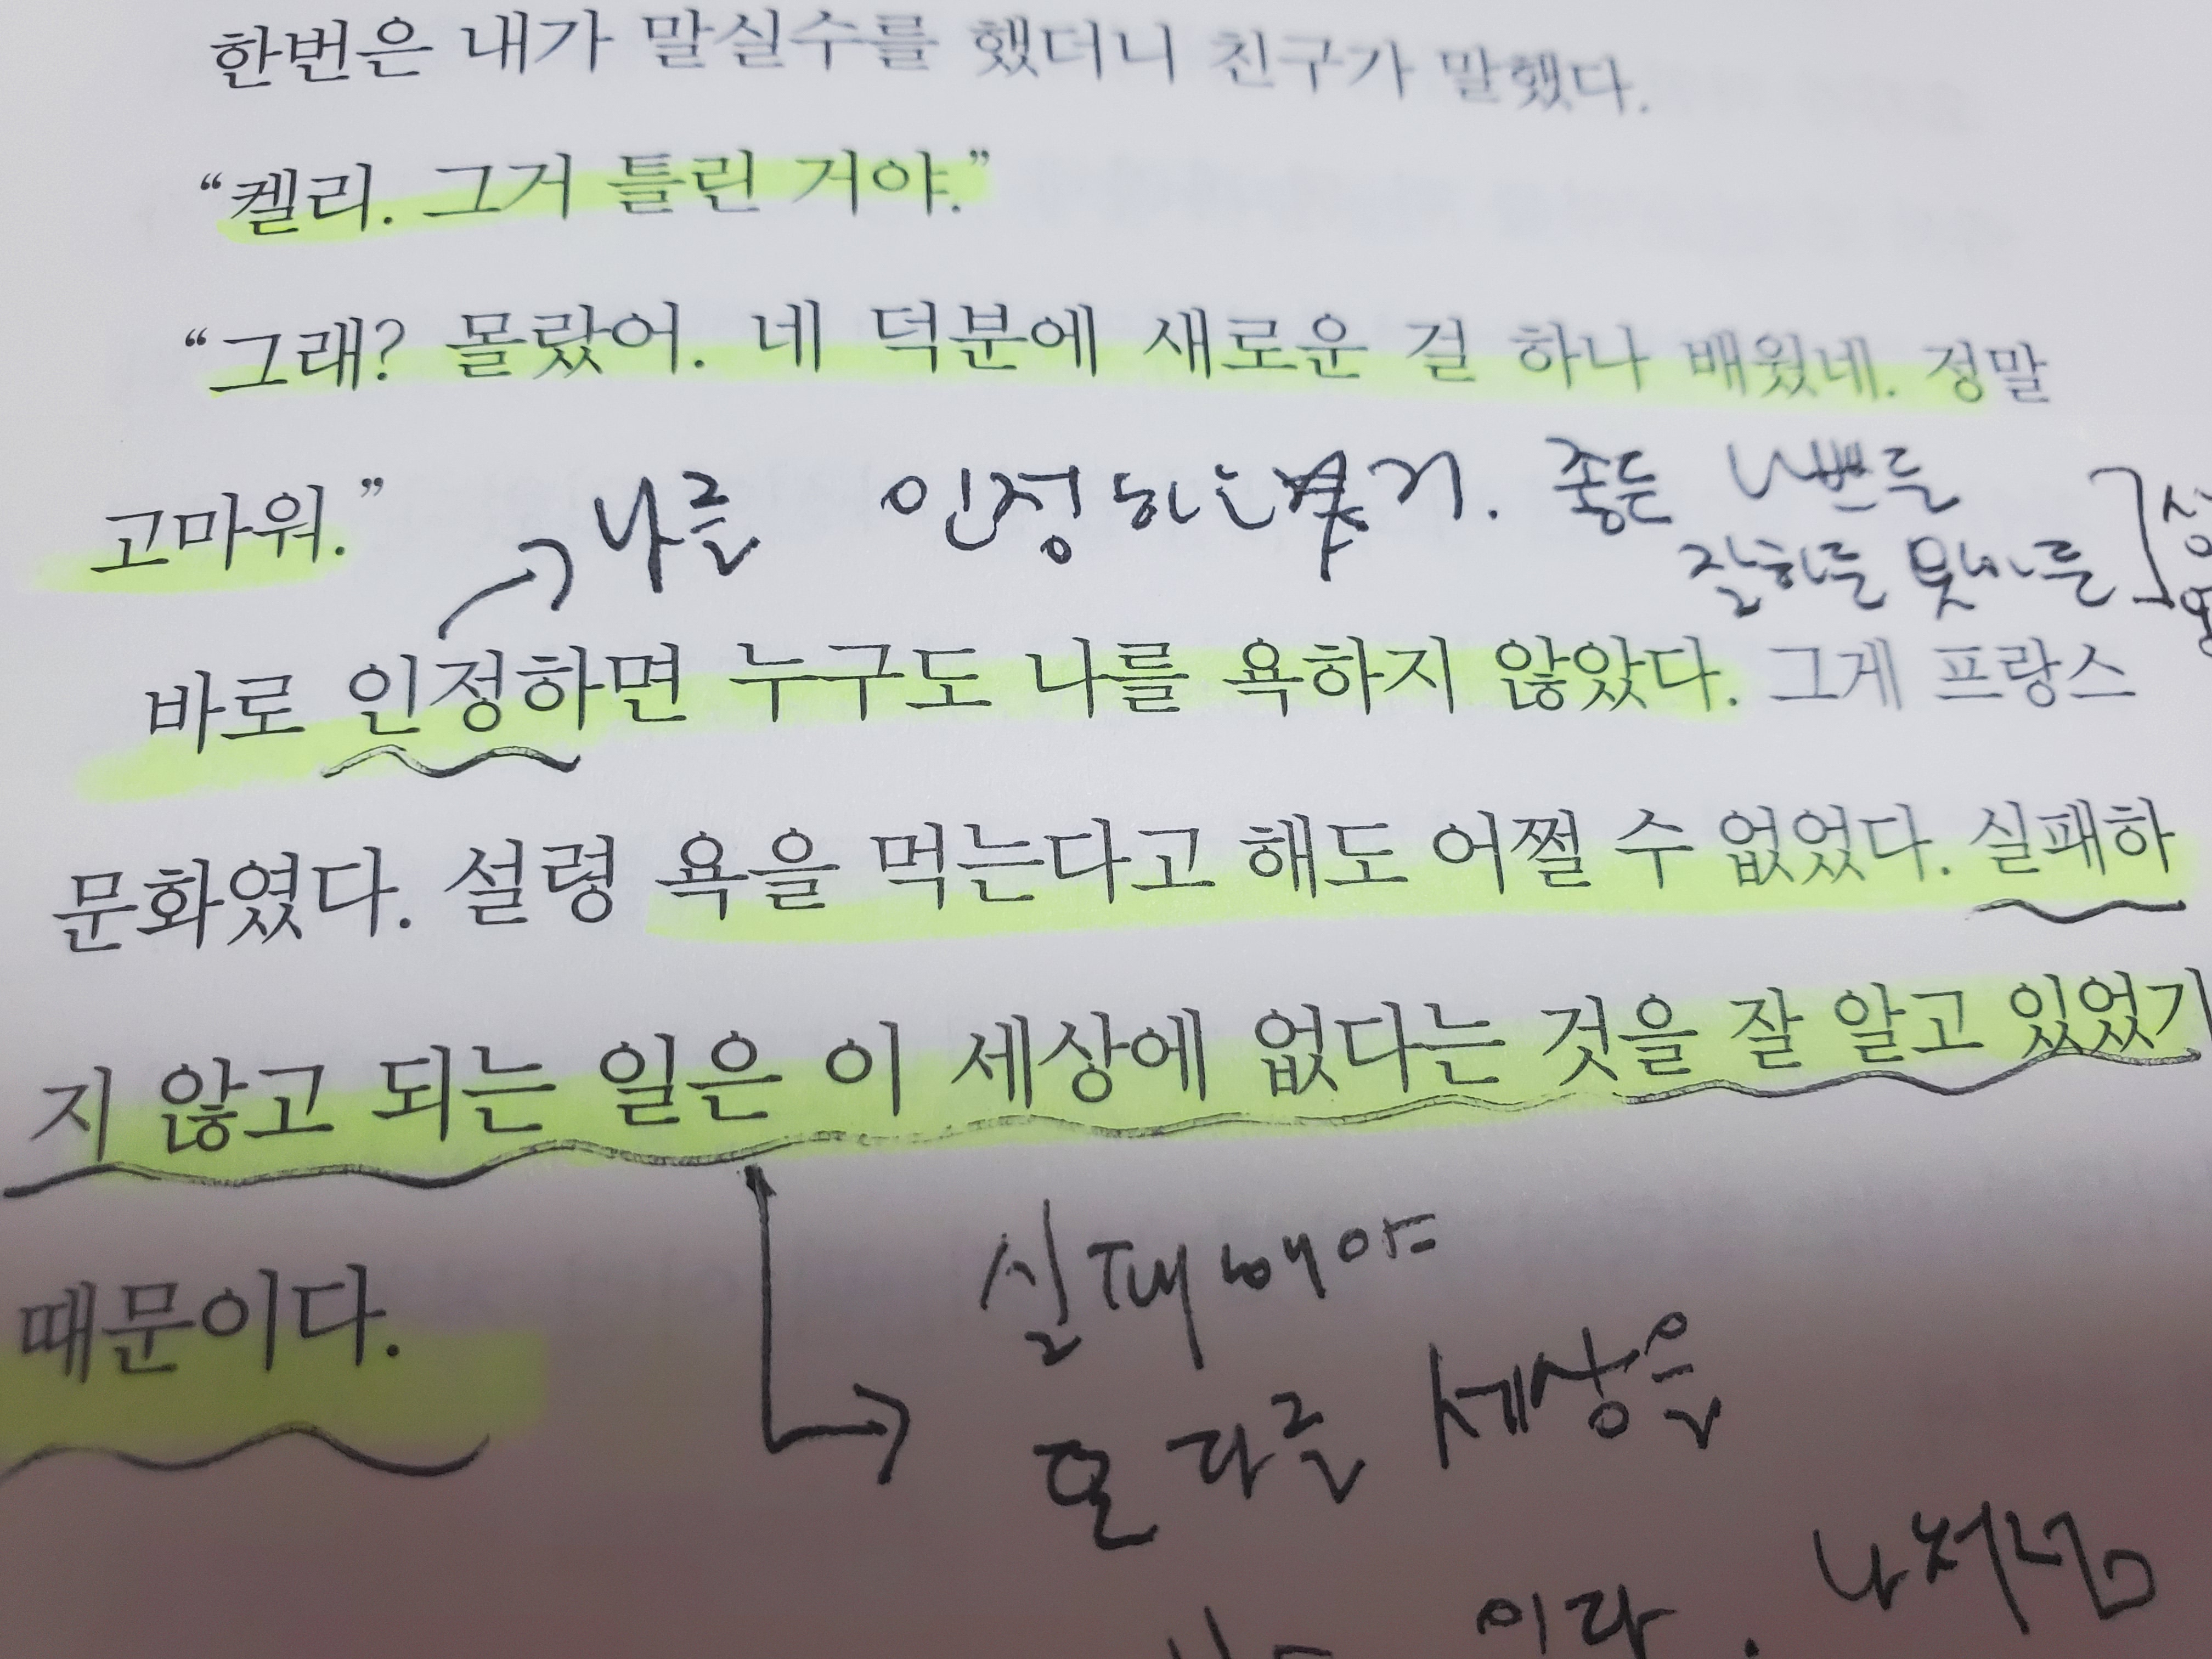 한번은 내가 말실수를 했더니 친구가 말했다.
“켈리. 그거 틀린 거야.”
“그래? 몰랐어. 네 덕분에 새로운 걸 하나 배웠네. 정말
고마워.”
나를 인정하는 기. 좋든 나쁘든
잘하든 못하든
바로 인정하면 누구도 나를 욕하지 않았다. 그게 프랑스
문화였다. 설령 욕을 먹는다고 해도 어쩔 수 없었다. 실패하
지 않고 되는 일은 이 세상에 없다는 것을 잘 알고 있었기
때문이다.
실패해야
세상을
이다. 나처럼